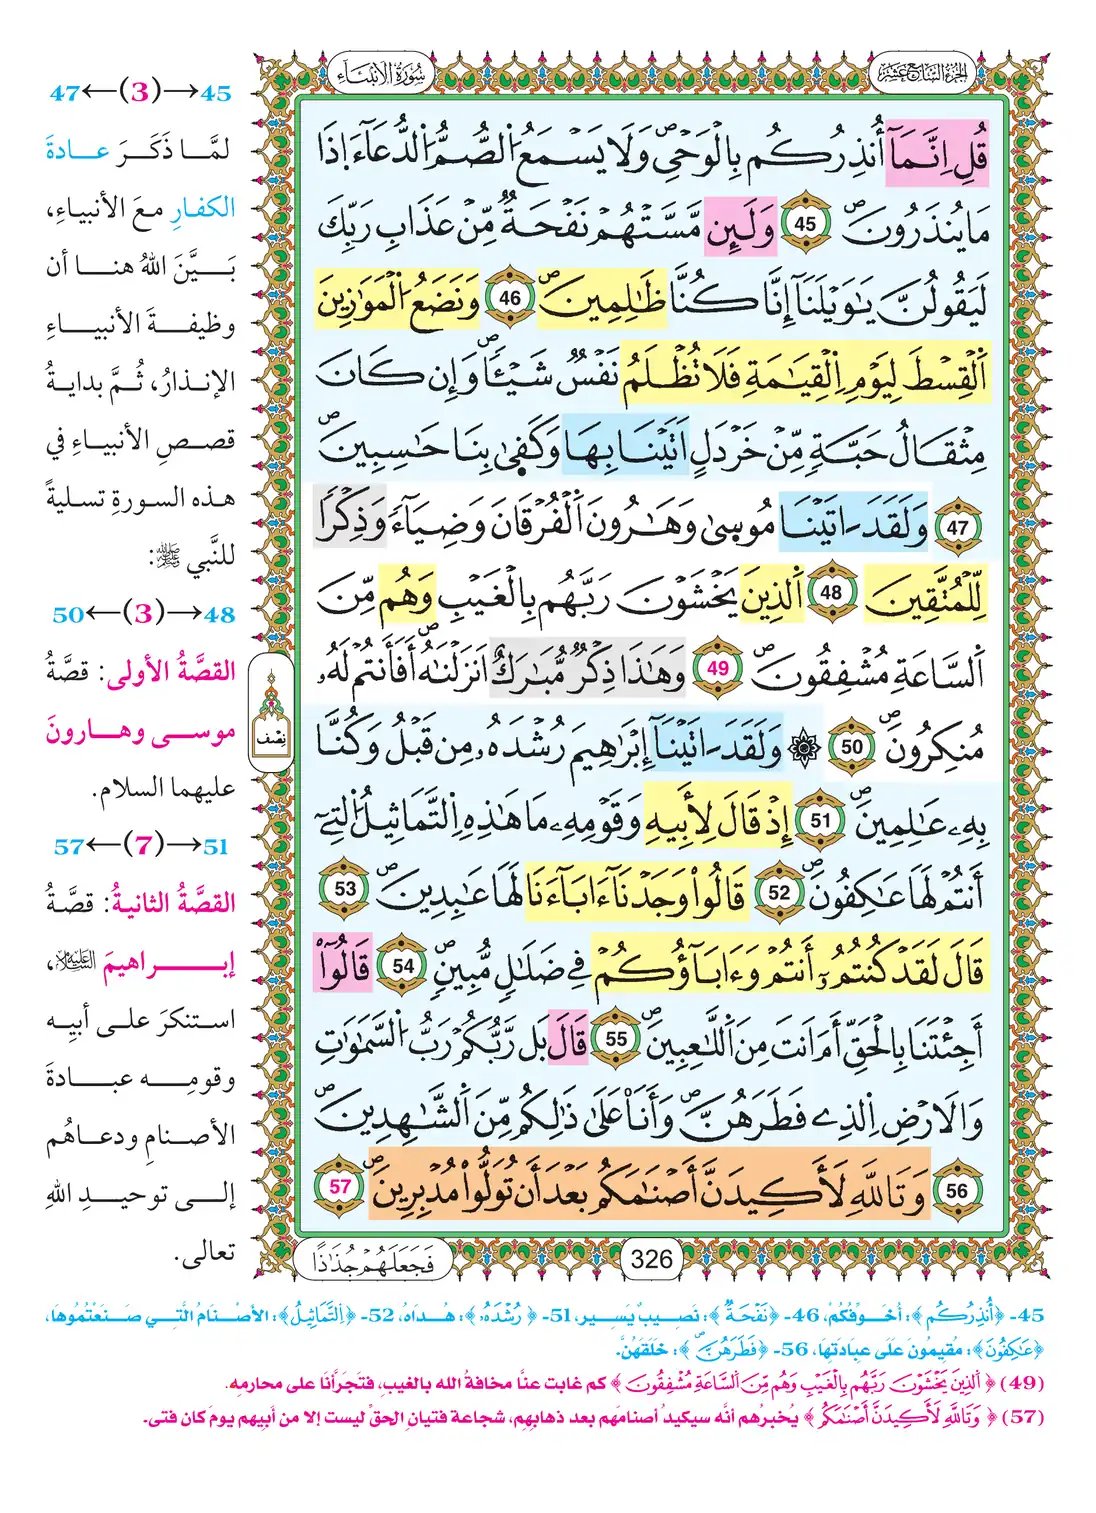 الجزء السابع عشر
سورة الأنبياء
قُلِ اِنَّمَآ أُنذِرُكُم بِالْوَحْيِ وَلَا يَسْمَعُ الصُّمُّ الدُّعَآءَ اِذَا
مَا يُنذَرُونَ 45 وَلَئِن مَّسَّتْهُمْ نَفْحَةٌ مِّنْ عَذَابِ رَبِّكَ
لَيَقُولُنَّ يَٰوَيْلَنَآ إِنَّا كُنَّا ظَٰلِمِينَ 46 وَنَضَعُ الْمَوَٰزِينَ
اَلْقِسْطَ لِيَوْمِ اِلْقِيَٰمَةِ فَلَا تُظْلَمُ نَفْسٌ شَيْـًٔا وَإِن كَانَ
مِثْقَالُ حَبَّةٍ مِّنْ خَرْدَلٍ اَتَيْنَا بِهَا وَكَفٰى بِنَا حَٰسِبِينَ
47 وَلَقَدَ اتَيْنَا مُوسٰى وَهَٰرُونَ اَلْفُرْقَانَ وَضِيَآءً وَذِكْرًا
لِّلْمُتَّقِينَ 48 اَلذِينَ يَخْشَوْنَ رَبَّهُم بِالْغَيْبِ وَهُم مِّنَ
اَلسَّاعَةِ مُشْفِقُونَ 49 وَهَٰذَا ذِكْرٌ مُّبَٰرَكٌ اَنزَلْنَٰهُ أَفَأَنتُمْ لَهُۥ
مُنكِرُونَ 50 ۞ وَلَقَدَ اتَيْنَآ إِبْرَٰهِيمَ رُشْدَهُۥ مِن قَبْلُ وَكُنَّا
بِهِۦ عَٰلِمِينَ 51 إِذْ قَالَ لِأَبِيهِ وَقَوْمِهِۦ مَا هَٰذِهِ اِلتَّمَاثِيلُ اُلتِےٓ
أَنتُمْ لَهَا عَٰكِفُونَ 52 قَالُواْ وَجَدْنَآ ءَابَآءَنَا لَهَا عَٰبِدِينَ 53
قَالَ لَقَدْ كُنتُمُۥٓ أَنتُمْ وَءَابَآؤُكُمْ فِے ضَلَٰلٍ مُّبِينٍ 54 قَالُوٓاْ
أَجِئْتَنَا بِالْحَقِّ أَمَ اَنتَ مِنَ اَللَّٰعِبِينَ 55 قَالَ بَل رَّبُّكُمْ رَبُّ اُلسَّمَٰوَٰتِ
وَالَارْضِ اِلذِے فَطَرَهُنَّ وَأَنَا۠ عَلَىٰ ذَٰلِكُم مِّنَ اَلشَّٰهِدِينَ
56 وَتَاللَّهِ لَأَكِيدَنَّ أَصْنَٰمَكُم بَعْدَ أَن تُوَلُّواْ مُدْبِرِينَ 57
فَجَعَلَهُمْ جُذَٰذًا
326
نصف
45→(3)←47
لمَّا ذَكَرَ عادةَ
الكفارِ معَ الأنبياءِ،
بَيَّنَ اللهُ هنا أن
وظيفةَ الأنبياءِ
الإنذارُ، ثُمَّ بدايةُ
قصصِ الأنبياءِ في
هذه السورةِ تسليةً
للنَّبي ﷺ:
48→(3)←50
القصَّةُ الأولى: قصَّةُ
موسى وهارونَ
عليهما السلام.
51→(7)←57
القصَّةُ الثانيةُ: قصَّةُ
إبراهيمَ عليه السلام،
استنكرَ على أبيِه
وقومِه عبادةَ
الأصنامِ ودعاهُم
إلى توحيدِ اللهِ
تعالى.
45- ﴿أُنذِرُكُم﴾: أخَوِّفُكُمْ، 46- ﴿نَفْحَةٌ﴾: نَصِيبٌ يَسِير، 51- ﴿رُشْدَهُۥ﴾: هُدَاهُ، 52- ﴿اِلتَّمَاثِيلُ﴾: الأصْنَامُ الَّتِي صَنَعْتُمُوهَا،
﴿عَٰكِفُونَ﴾: مُقِيمُونَ عَلَى عِبَادَتِهَا، 56- ﴿فَطَرَهُنَّ﴾: خَلَقَهُنَّ.
(49) ﴿اَلذِينَ يَخْشَوْنَ رَبَّهُم بِالْغَيْبِ وَهُم مِّنَ اَلسَّاعَةِ مُشْفِقُونَ﴾ كم غابت عنَّا مخافةُ الله بالغيبِ، فتَجَرَّأنَا على محارمِه.
(57) ﴿وَتَاللَّهِ لَأَكِيدَنَّ أَصْنَٰمَكُم﴾ يُخبرُهم أنَّه سيكيدُ أصنامَهم بعد ذهابِهِم، شجاعة فتيانِ الحقِّ ليست إلا من أبيهم يومَ كان فتى.